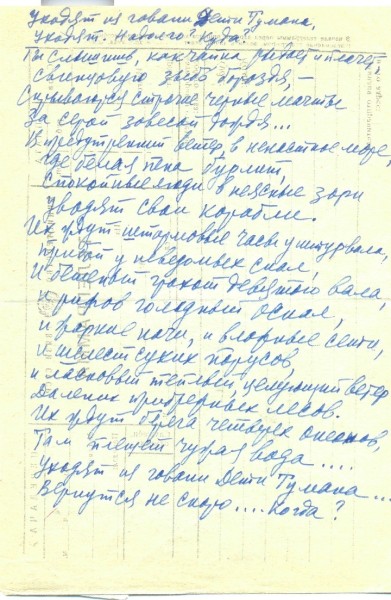 Уходят из гавани Дети Тумана,
уходят. Надолго? Куда?
Ты слышишь, как чайка рыдает и плачет,
свинцовую зыбь бороздя, –
Скрываются строгие черные мачты
за серой завесой дождя...
В предутренний ветер, в ненастное море,
где белая пена бурлит,
Спокойные люди в неясные зори
уводят свои корабли.
Их ждут штормовые часы у штурвала,
прибой у неведомых скал,
И бешеный грохот девятого вала,
и рифов голодный оскал,
и жаркие ночи, и влажные сети,
и шелест сухих парусов,
и ласковый теплый, целующий ветер
далеких прибрежных лесов.
Их ждут берега четырех океанов,
Там плещет чужая вода....
Уходят из гавани Дети Тумана...
Вернутся не скоро.... когда?